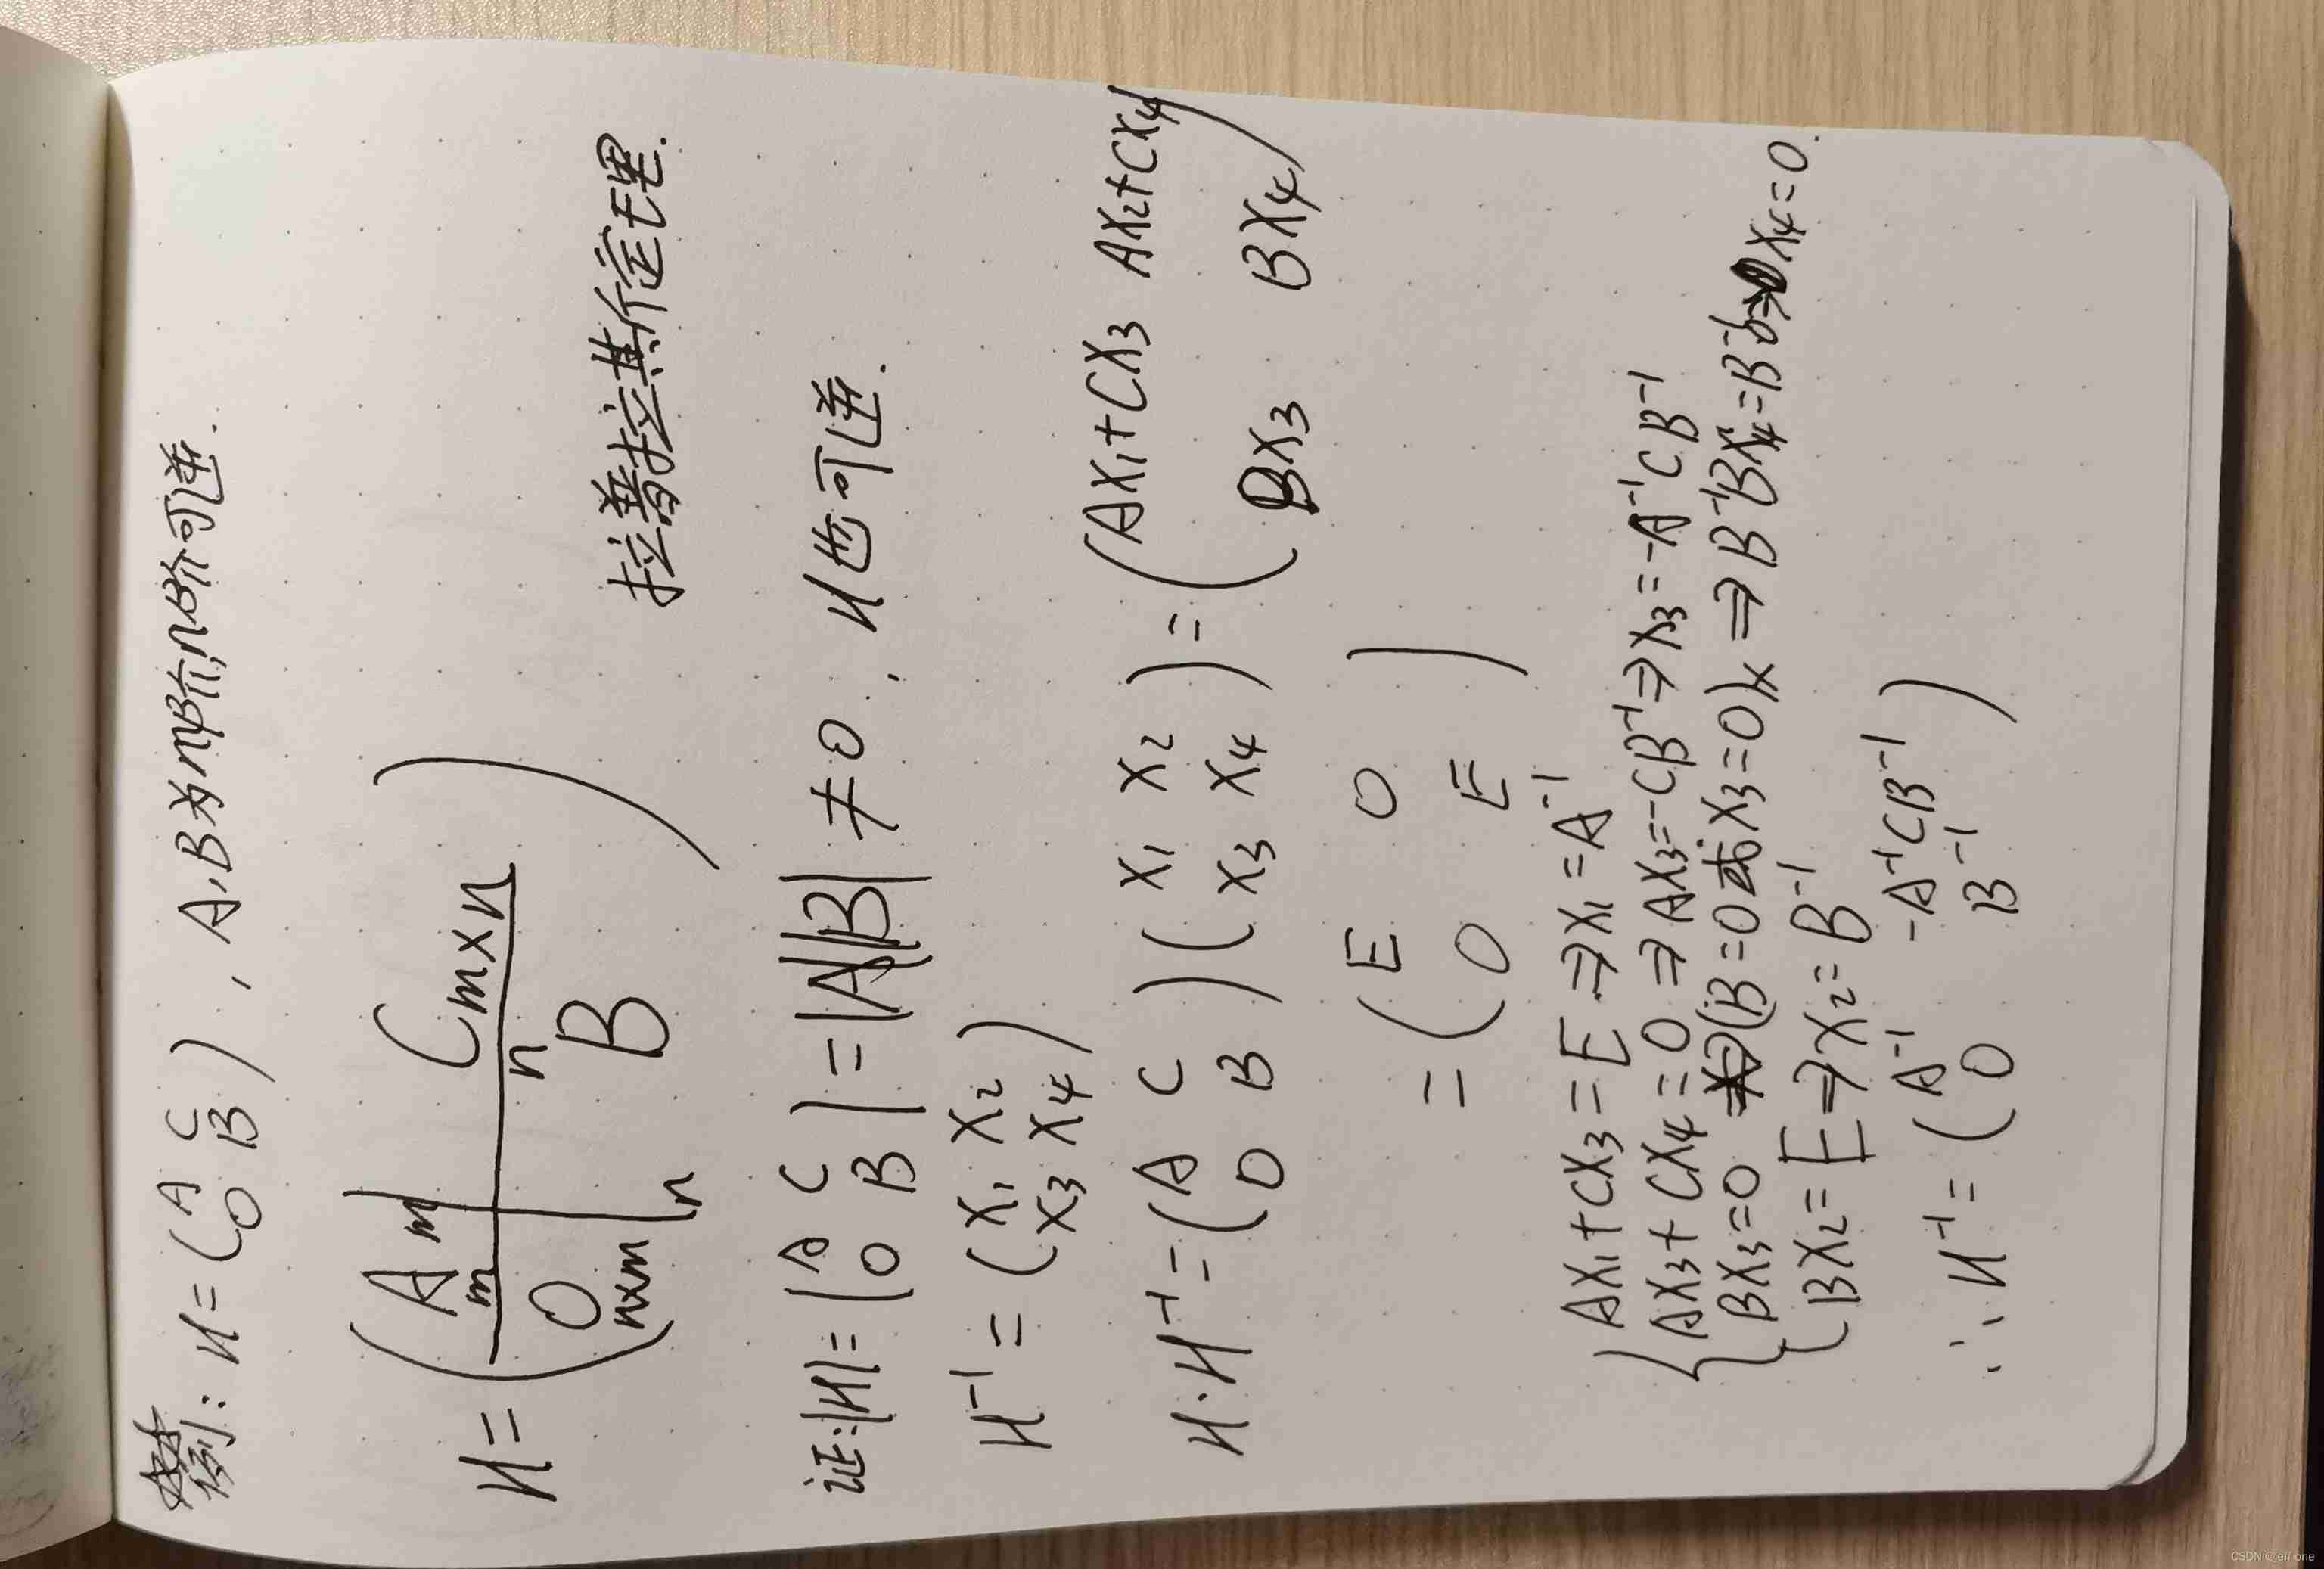 例: H = ( A C
0 B ) , A,B为m阶,n阶可逆.
H = ( A m m C m×n
0 n×m n n B )
拉普拉斯定理.
证:|H| = | A C
0 B | = |A||B| ≠ 0. H也可逆.
H⁻¹ = ( X₁ X₂
X₃ X₄ )
H·H⁻¹ = ( A C
0 B ) ( X₁ X₂
X₃ X₄ ) = ( AX₁+CX₃ AX₂+CX₄
BX₃ BX₄ )
= ( E 0
0 E )
{ AX₁+CX₃=E ⇒ X₁=A⁻¹
AX₃+CX₄=0 ⇒ AX₃=-CB⁻¹ ⇒ X₃=-A⁻¹CB⁻¹
BX₃=0 (B=0或X₃=0)× ⇒ B⁻¹BX₄=B⁻¹0 X₄=0.
BX₂=E ⇒ X₂=B⁻¹
∴ H⁻¹ = ( A⁻¹ -A⁻¹CB⁻¹
0 B⁻¹ )
CSDN @jeff one